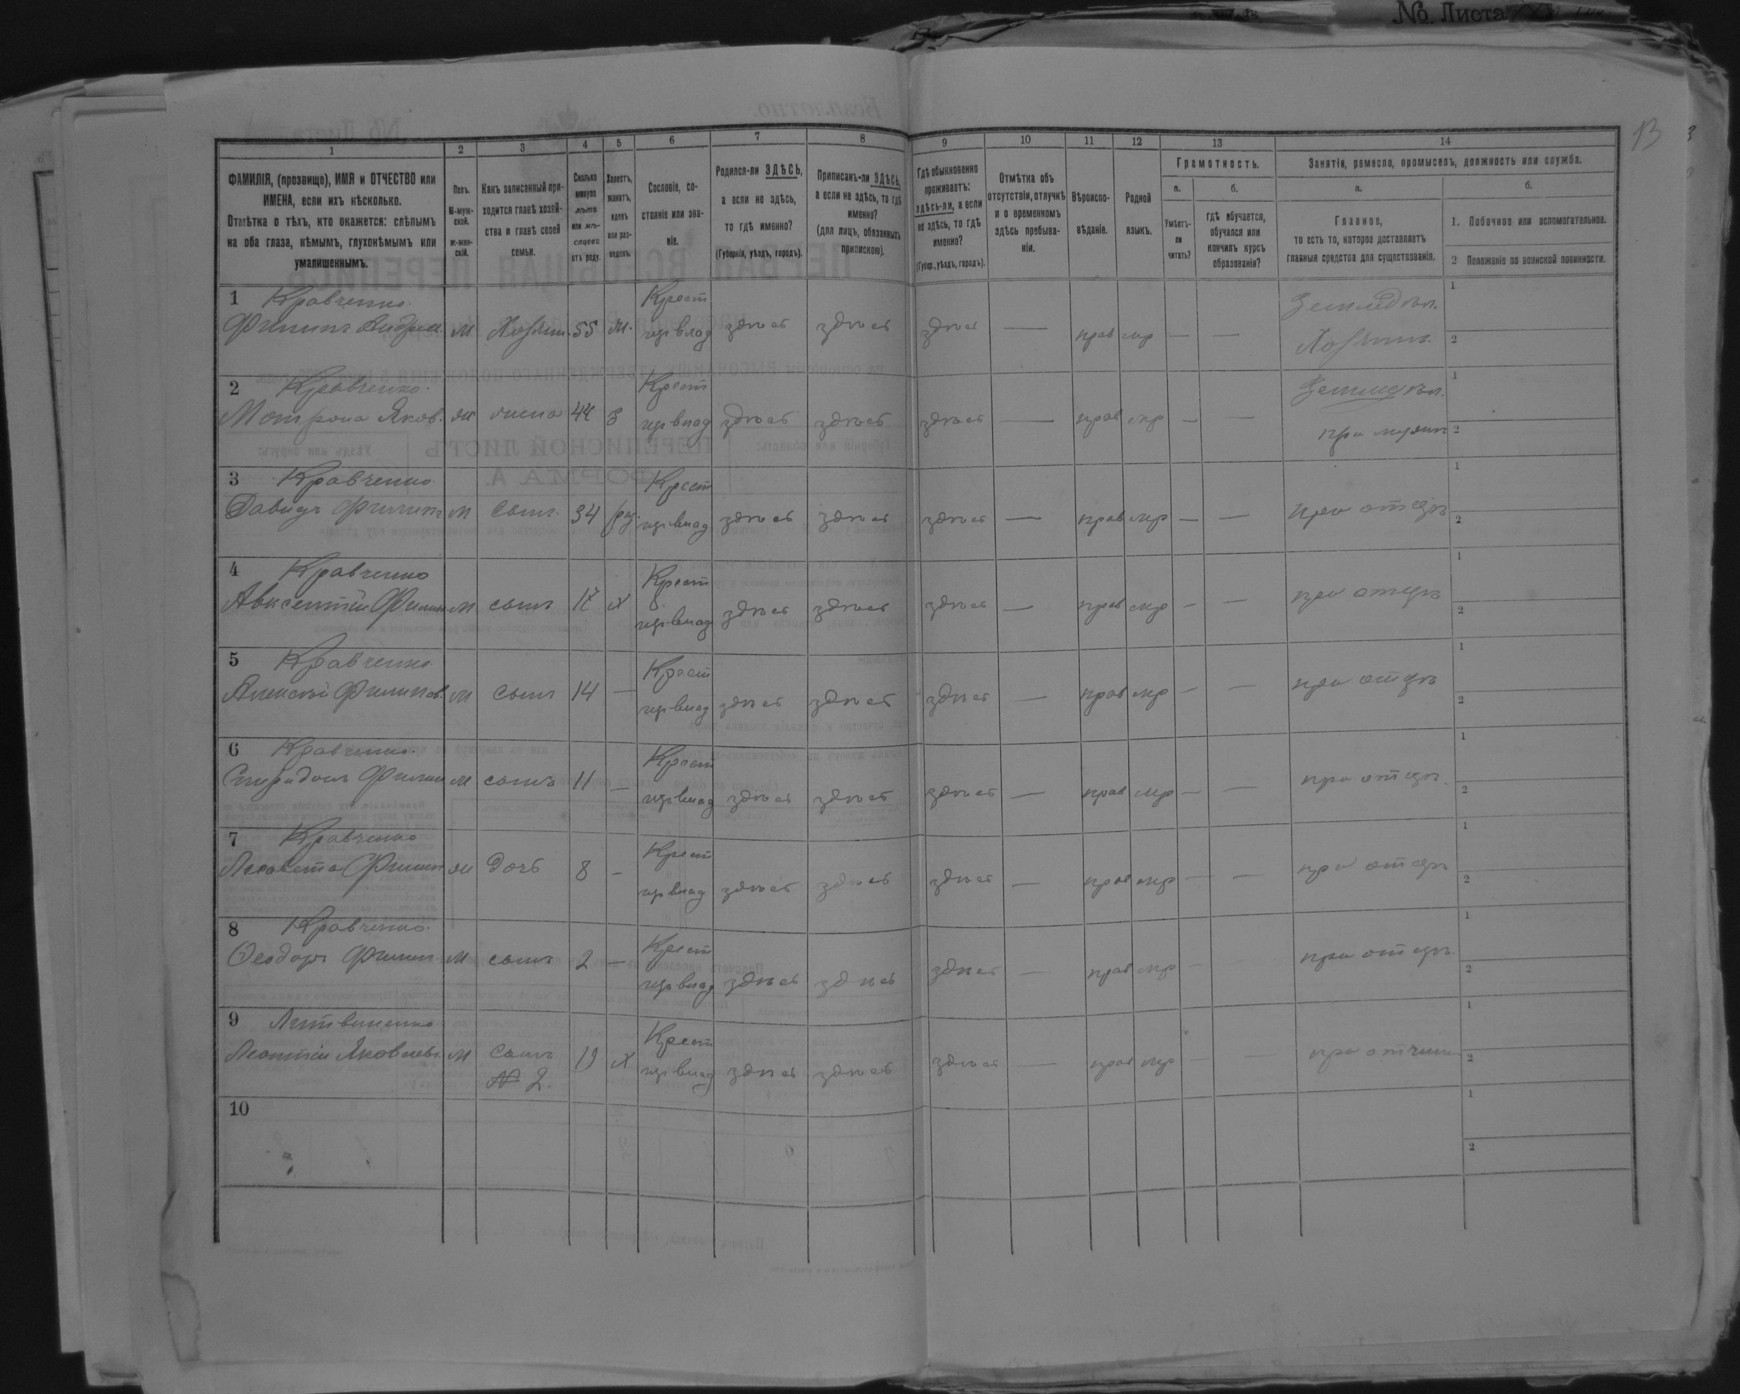 No. Листа
13
1 2 3 4 5 6 7 8 9 10 11 12 13 14
ФАМИЛІЯ, (прозвище), ИМЯ и ОТЧЕСТВО или ИМЕНА, если ихъ нѣсколько.
Отмѣтка о тѣхъ, кто окажется: слѣпымъ на оба глаза, нѣмымъ, глухонѣмымъ или умалишеннымъ.
Полъ.
М-муж-
ской.
ж-жен-
скій.
Какъ записанный при-
ходится главѣ хозяй-
ства и главѣ своей
семьи.
Сколько
минуло
лѣтъ
или мѣ-
сяцевъ
отъ роду.
Холостъ,
женатъ,
вдовъ
или раз-
веденъ.
Сословіе, со-
стояніе или зва-
ніе.
Родился-ли ЗДѢСЬ,
а если не здѣсь,
то гдѣ именно?
(Губернія, уѣздъ, городъ).
Приписанъ-ли ЗДѢСЬ,
а если не здѣсь, то гдѣ
именно?
(для лицъ, обязанныхъ
припискою).
Гдѣ обыкновенно
проживаетъ:
здѣсь-ли, а если
не здѣсь, то гдѣ
именно?
(Губер., уѣздъ, городъ).
Отмѣтка объ
отсутствіи, отлучкѣ
и о временномъ
здѣсь пребыва-
ніи.
Вѣроиспо-
вѣданіе.
Родной
языкъ.
Грамотность.
а.
Умѣетъ-
ли
читать?
б.
гдѣ обучается,
обучался или
кончилъ курсъ
образованія?
Занятіе, ремесло, промыселъ, должность или служба.
а.
Главное,
то есть то, которое доставляетъ
главныя средства для существованія.
б.
1. Побочное или вспомогательное.
2 Положеніе по воинской повинности.
1 Кравченко Крест Земледѣл. 1
Филипъ Андрее м Хозяин 55 ж. здѣсь здѣсь здѣсь — прав мр — — Хозяинъ 2
2 Кравченко Крест Земледѣл. 1
Мотрона Яков. ж жена 44 з здѣсь здѣсь здѣсь — прав мр — — при мужѣ 2
3 Кравченко Крест 1
Давидъ Филип м сынъ 34 здѣсь здѣсь здѣсь — прав мр — — при отцѣ 2
4 Кравченко Крест 1
Авксентій Филип м сынъ 17 х здѣсь здѣсь здѣсь — прав мр — — при отцѣ 2
5 Кравченко Крест 1
Алексѣй Филипов. м сынъ 14 — здѣсь здѣсь здѣсь — прав мр — — при отцѣ 2
6 Кравченко Крест 1
Спиридонъ Филип м сынъ 11 — здѣсь здѣсь здѣсь — прав мр — — при отцѣ 2
7 Кравченко Крест 1
Лисавета Филип ж дочь 8 — здѣсь здѣсь здѣсь — прав мр — — при отцѣ 2
8 Кравченко Крест 1
Ѳеодоръ Филип м сынъ 2 — здѣсь здѣсь здѣсь — прав мр — — при отцѣ 2
9 Литвиненко Крест 1
Леонтій Яковлев м сынъ № 2. 19 х здѣсь здѣсь здѣсь — прав мр — — при отчим 2
10 1
2